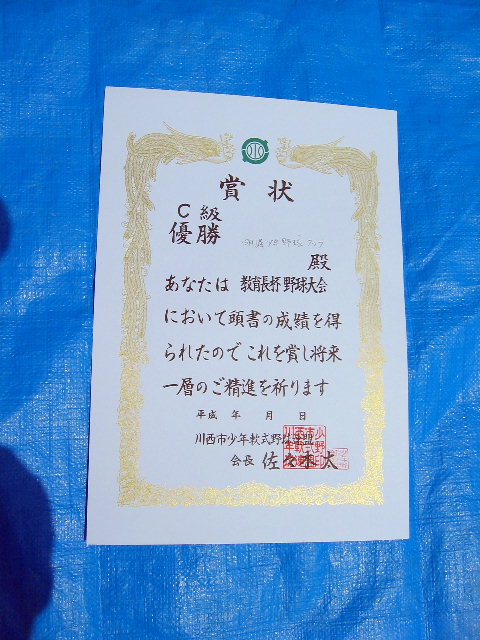 賞状
C級
優勝
殿
あなたは 教育長杯野球大会
において頭書の成績を得
られたので これを賞し将来
一層のご精進を祈ります
平成 年 月 日
川西市少年軟式野球連盟
会長 佐々木 太